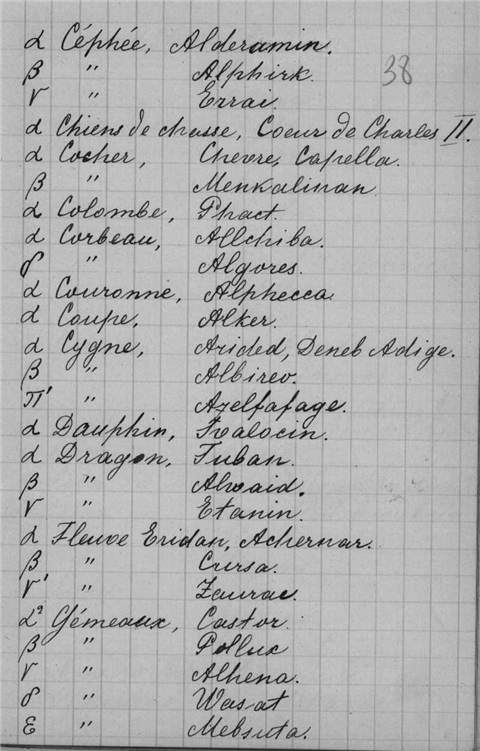 α Céphée, Alderamin.
β " Alphirk.
38
γ " Errai.
α Chiens de chasse, Coeur de Charles II.
α Cocher, Chevre, Capella.
β " Menkalinan
α Colombe, Phact.
α Corbeau, Allchiba.
δ " Algores.
α Couronne, Alphecca
α Coupe, Alker.
α Cygne, Arided, Deneb Adige.
β " Albireo.
π' " Azelfafage.
α Dauphin, Svalocin.
α Dragon, Tuban.
β " Alwaid.
γ " Etanin.
α Fleuve Eridan, Achernar.
β " Cursa.
γ' " Zaurac.
α² Gémeaux, Castor.
β " Pollux
γ " Alhena.
δ " Wasat
ε " Mebsuta.